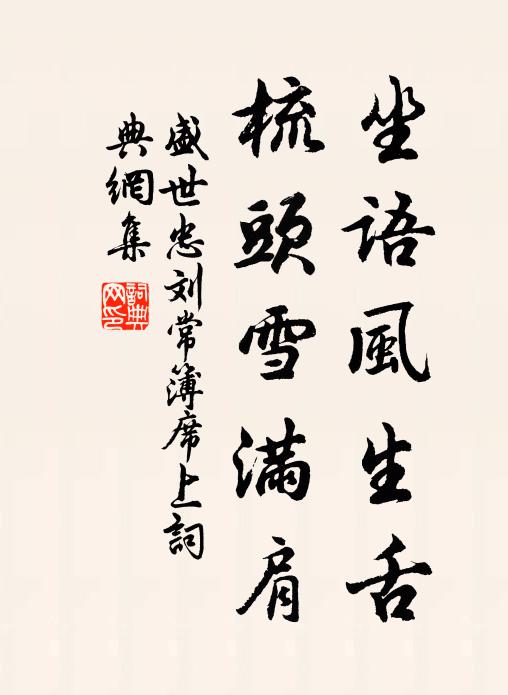 坐語風生舌
梳頭雪滿肩
盛世忠刘常簿席上詞
典網集
詞典
网印